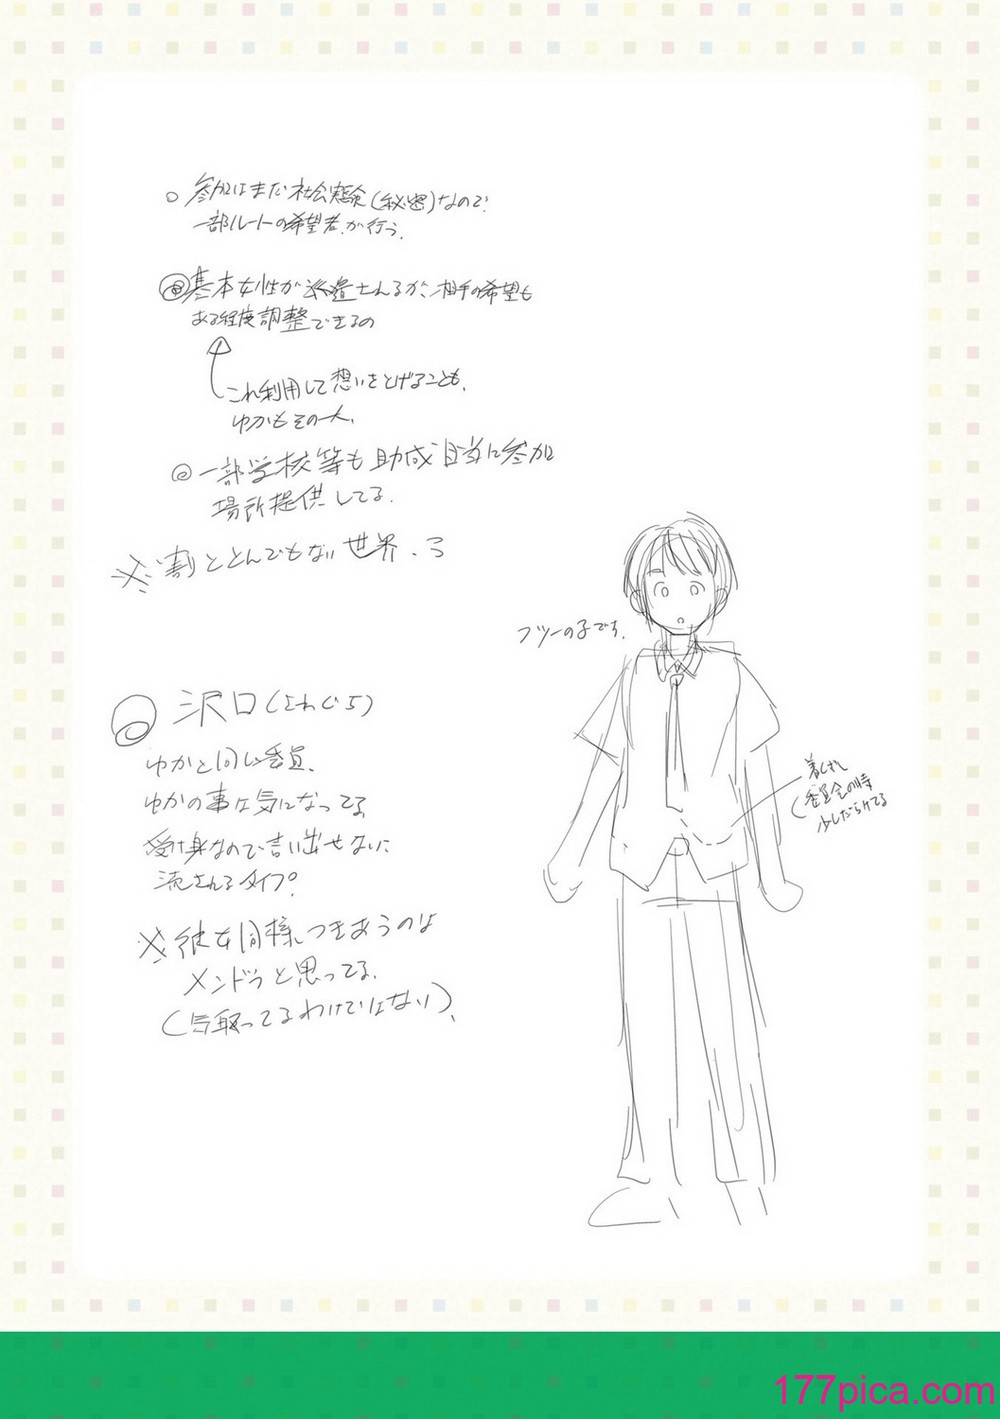 ○ 参加はまだ社会実験(秘密)なので
一部ルートの希望者が行う.
◎基本女性が派遣されるが、相手の希望も
ある程度調整できるの
これ利用して想いをとげることも.
ゆかもその一人.
◎一部学校等も助成目当に参加
場所提供してる.
※割ととんでもない世界.
フツーの子です.
◎ 沢口(さわぐち)
ゆかと同じ委員.
ゆかの事は気になってる
受け身なので言い出せない.
流されるタイプ。
着くずし
(委員会の時
少しだらけてる
※彼も同様つきあうのは
メンドウと思ってる.
(気取ってるわけではない).
177pica.com